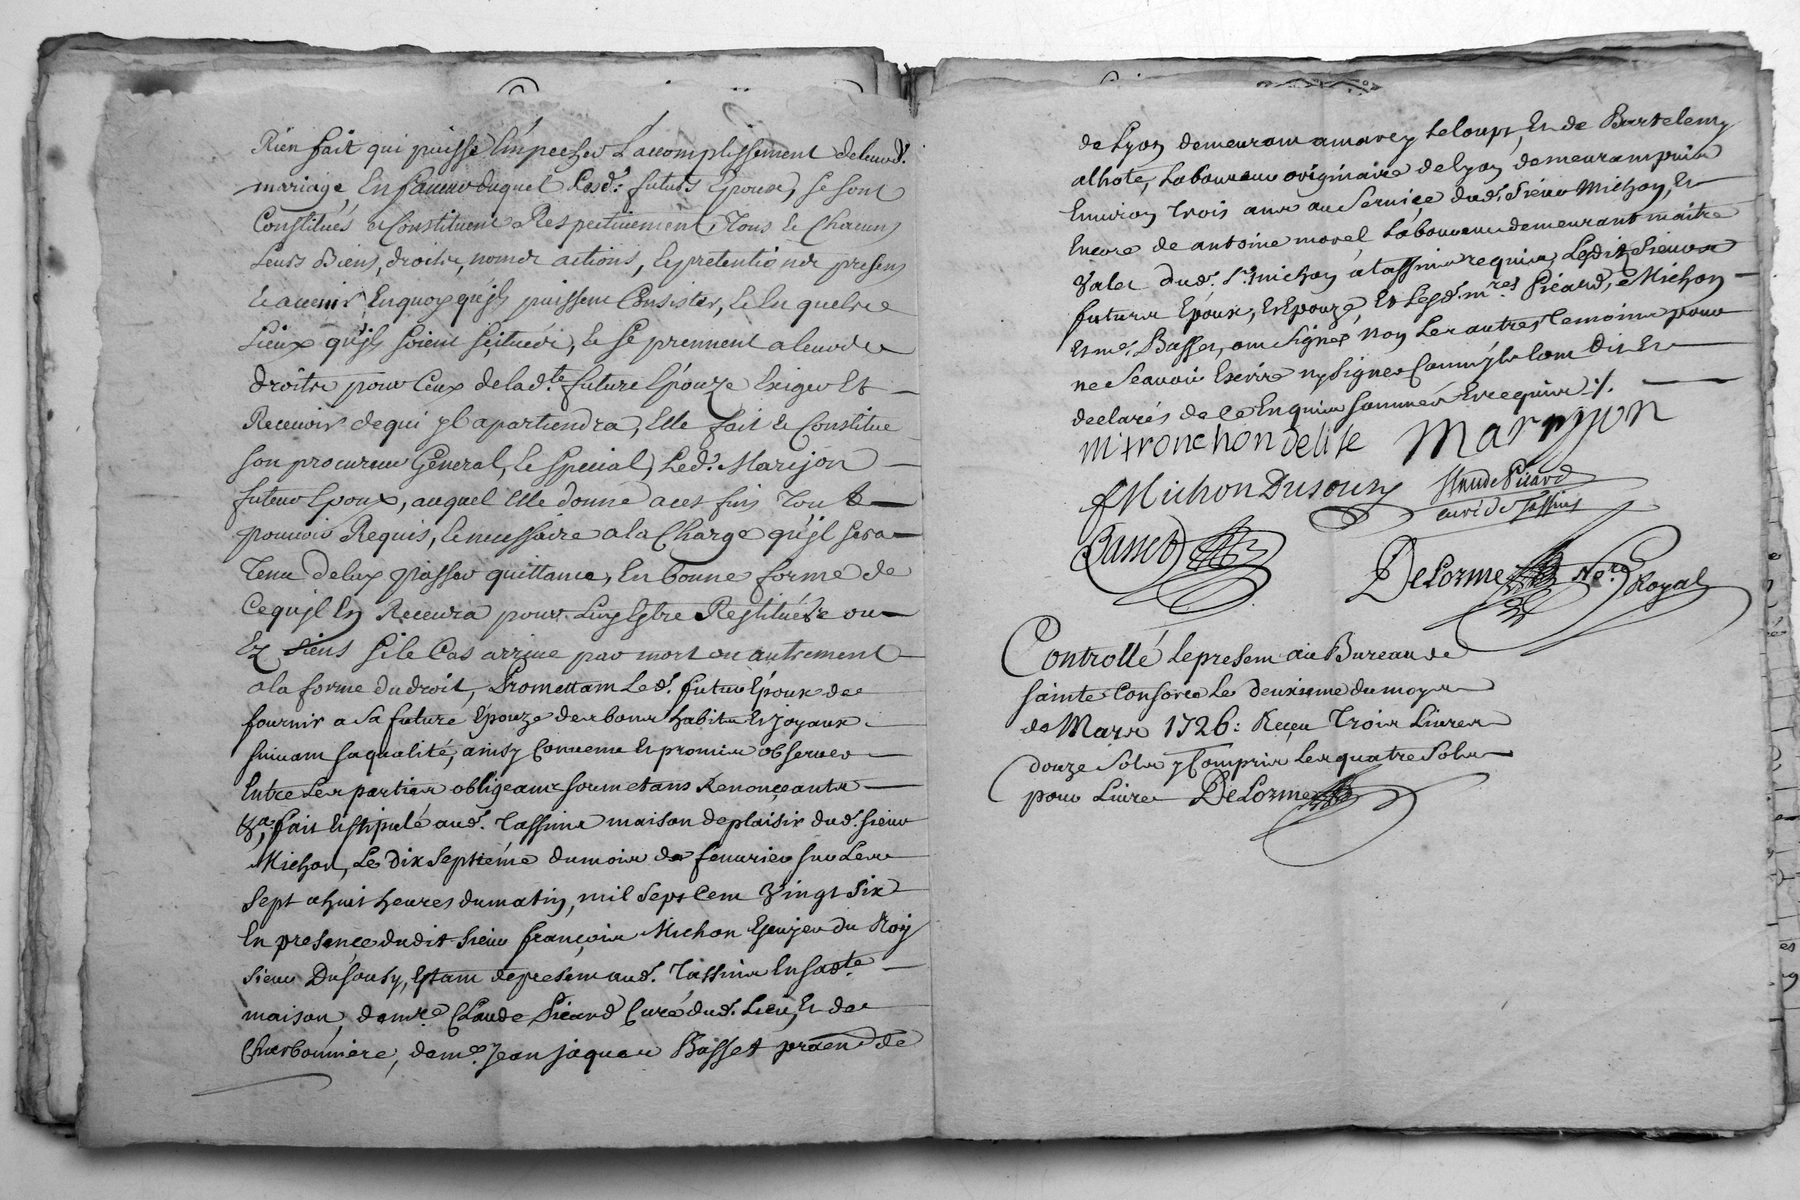 Rien fait qui puisse Empecher L'accomplissement deleurd.
mariage, En faveur duquel Lesd. futurs Epoux, se sont
Constitués & Constituent Respectivement, Tous & Chacuns
Leurs Biens, droits, noms actions, & pretentions presens
& avenir Enquoy qu'ils puissent Consister, & En quelque
Lieux qu'ils soient scitués, & se prennent a leurs
droits pour Ceux de lad.te future Epouze Exiger Et
Recevoir de qui yl apartiendra, Elle fait & Constitue
son procureur General, & special, Led. Marijon
futeur Epoux, auquel Elle donne a ces fins Tout
pouvoir Requis, & necessaire a la Charge qu'jl sera
Tenu de Luy Passer quittance, En bonne forme de
Ce qu'jl En Recevra pour Luy Estre Restitué ou
Ez siens si le Cas arrive par mort ou autrement
a la forme du droit, Promettant Led. futur Epoux de
fournir a sa future Epouze des bons habits Et joyaux
suivant sa qualité, ainsy Convenu Et promis observer
Entre Les parties obligeants soumetans Renonçants
&a, fait Et stipulé aud. Tassins maison de plaisir dud. sieur
Michon, Le dix septiéme du mois de fevrier sur Les
sept a huit heures du matin, mil sept Cent Vingt six
En presence dudit sieur françois Michon Ecuyer du Roy
sieur Dusoury, Estant de present aud. Tassins En sad.te
maison, de m.re Claude Picard Curé dud. Lieu, Et de
Charbonniere, de m.e Jean jaques Basset praen de
de Lyon demeurant a marcy Le loup, Et de Bartelemy
alhote, Laboureur originaire de Lyon demeurant puis
Environ Trois ans au Service dud. Sieur Michon, Et
Encore de antoine morel Laboureur demeurant maitre
Valet dud. S. michon a tassins requis, Lesdits Sieurs
futurs Epoux, Et Epouze, Et Lesd. m.res Picard, & Michon
Et m.e Basset, ont Signés non Les autres Temoins pour
ne Scavoir Ecrire ny Signer Comm'jls lont Dit Et
declarés de Ce Enquis sommés Et requis ./.
m tronchon delise Marijon
f Michon Dusoury Claude Picard
curé de Tassins
Basset
DeLorme No.re Royal
Controllé le present au Bureau de
sainte Consorce Le deuxieme du moys
de Mars 1726: Reçeu Trois Livres
douze Sols y Compris Les quatre Sols
pour Livre DeLorme